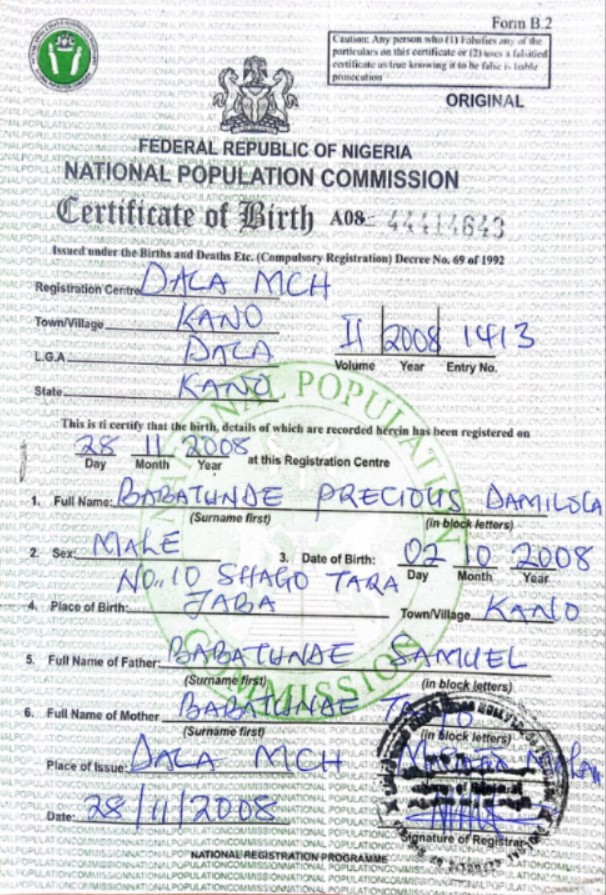 Form B.2
Caution: Any person who (1) Falsifies any of the
particulars on this certificate or (2) uses a falsified
certificate as true knowing it to be false is liable
prosecution
ORIGINAL
FEDERAL REPUBLIC OF NIGERIA
NATIONAL POPULATION COMMISSION
Certificate of Birth A08 44414643
Issued under the Births and Deaths Etc. (Compulsory Registration) Decree No. 69 of 1992
Registration Centre DALA MCH
Town/Village KANO
II 2008 1413
L.G.A DALA
Volume Year Entry No.
State KANO
This is ti certify that the birth, details of which are recorded herein has been registered on
28 11 2008 at this Registration Centre
Day Month Year
1. Full Name: BABATUNDE PRECIOUS DAMILOLA
(Surname first) (in block letters)
2. Sex: MALE 3. Date of Birth: 02 10 2008
Day Month Year
NO. 10 SHAGO TARA
4. Place of Birth: JABA Town/Village KANO
5. Full Name of Father: BABATUNDE SAMUEL
(Surname first) (in block letters)
6. Full Name of Mother BABATUNDE
(Surname first) (in block letters)
Place of Issue: DALA MCH
Date: 28/11/2008
Signature of Registrar
NATIONAL REGISTRATION PROGRAMME